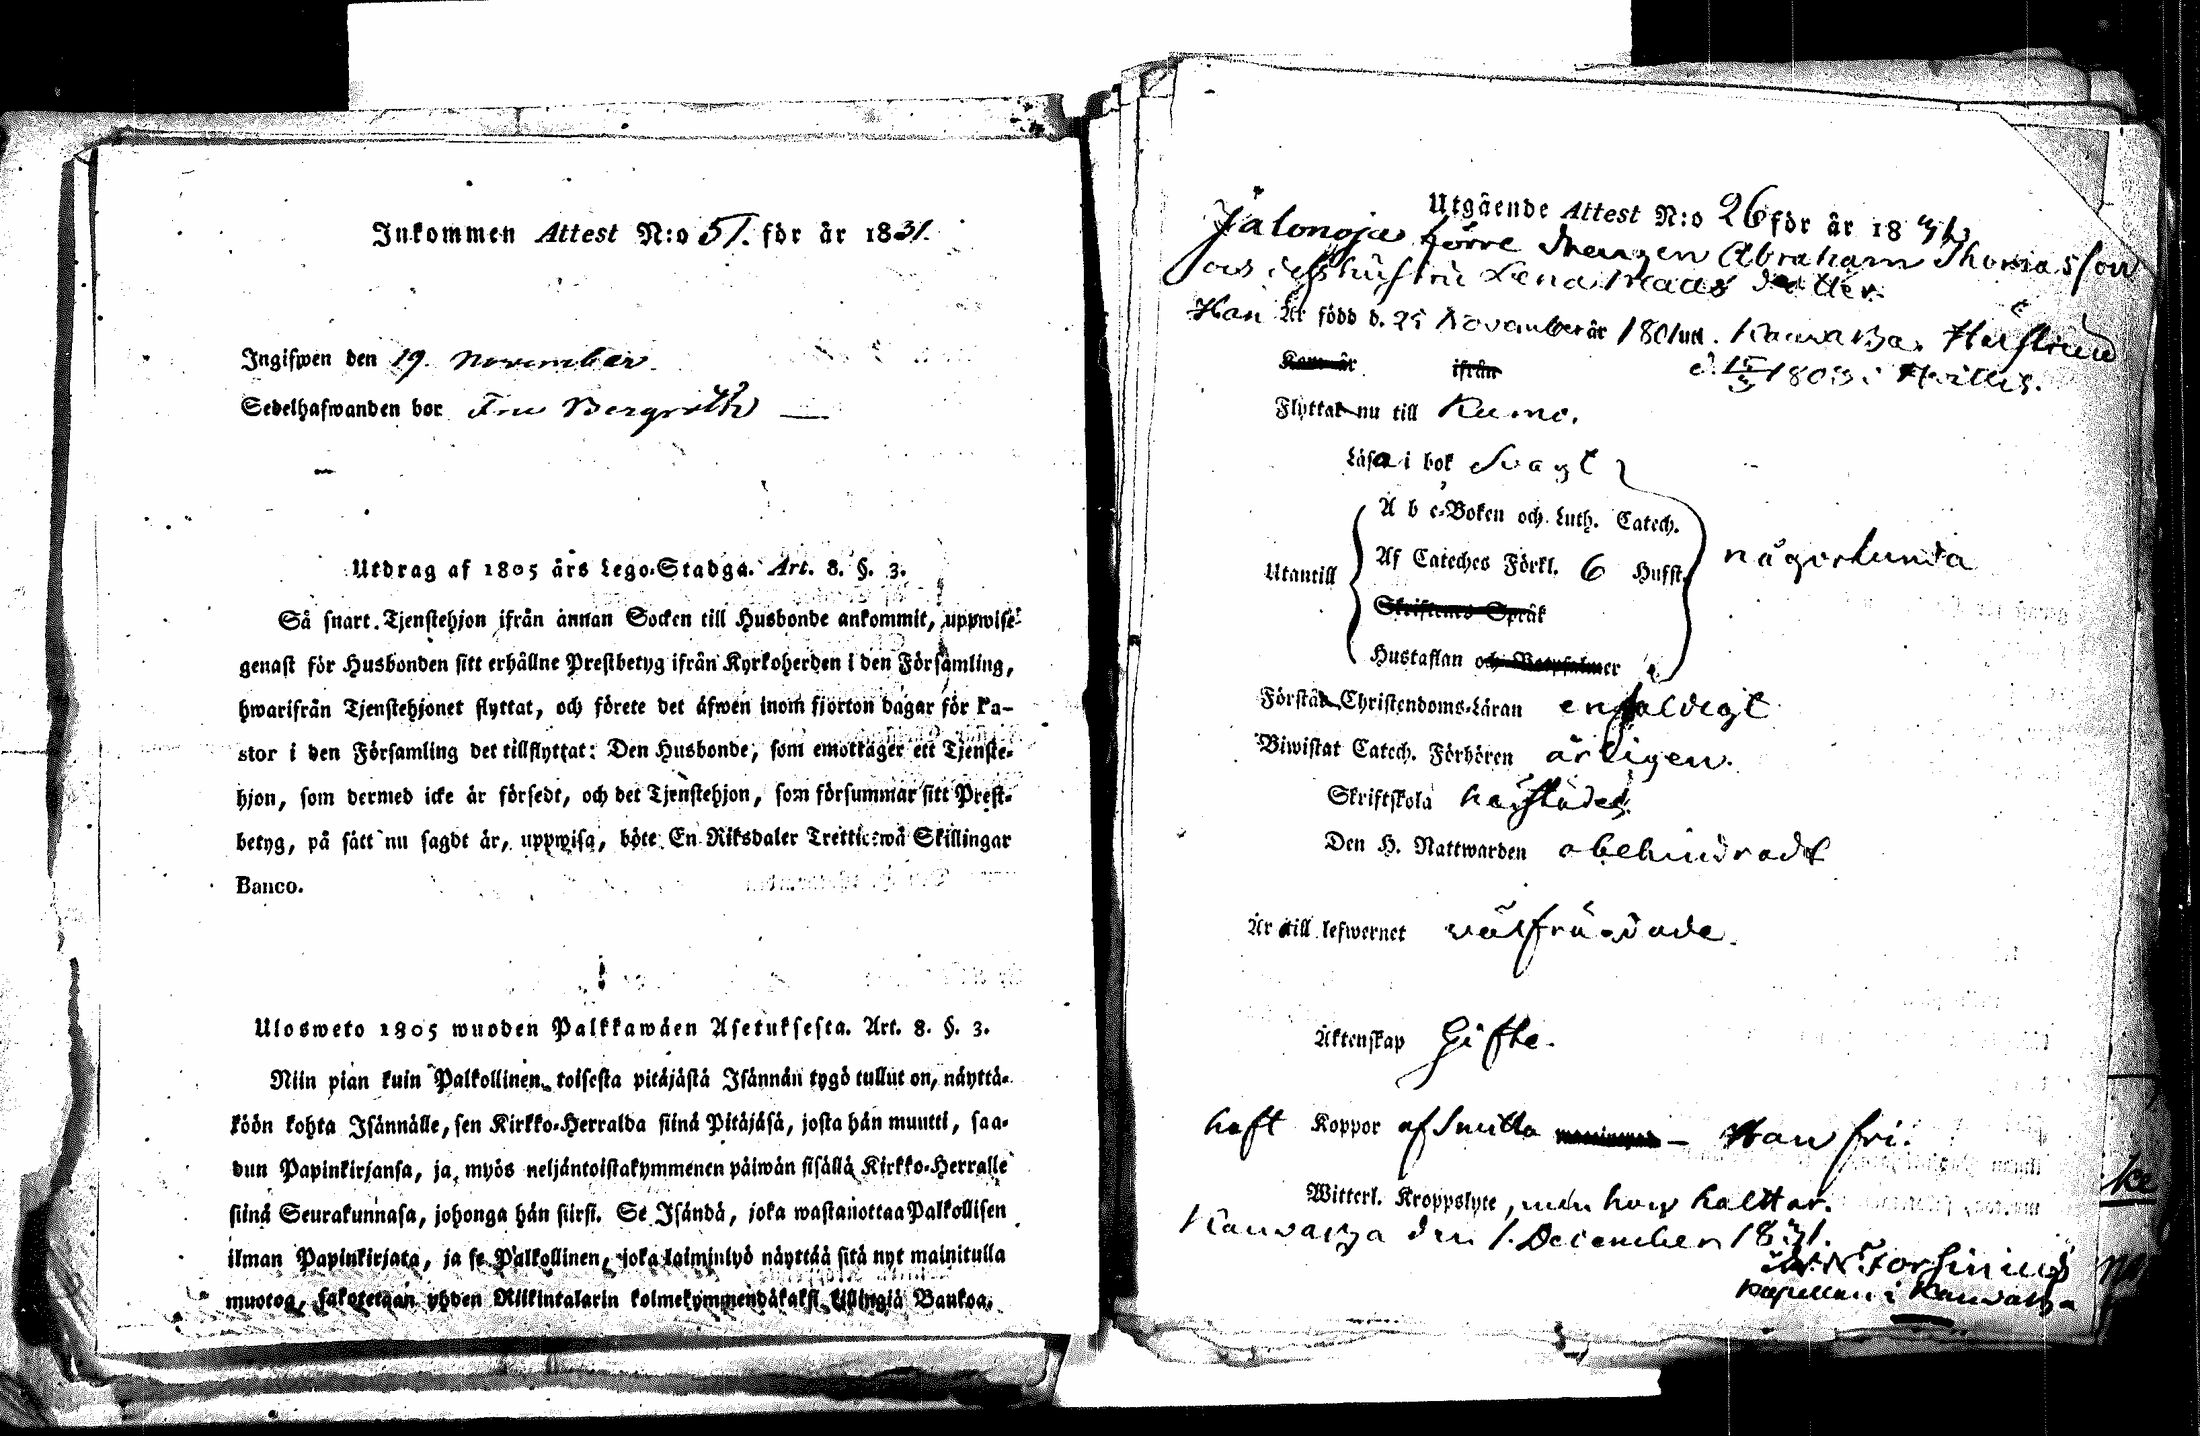 Inkommen Attest N:o 51. för år 1831.
Ingifwen den 19. November.
Sedelhafwanden bor Fru Bergroth —
Utdrag af 1805 års Lego-Stadga. Art. 8. §. 3.
Så snart Tjenstehjon ifrån annan Socken till Husbonde ankommit, uppwise
genast för Husbonden sitt erhållne Prestbetyg ifrån Kyrkoherden i den Församling,
hwarifrån Tjenstehjonet flyttat, och förete det äfwen inom fjorton dagar för Pa-
stor i den Församling det tillflyttat: Den Husbonde, som emottager ett Tjenste-
hjon, som dermed icke är försedt, och det Tjenstehjon, som försummar sitt Prest-
betyg, på sätt nu sagdt är, uppwisa, böte En Riksdaler Trettiotwå Skillingar
Banco.
Ulosweto 1805 wuoden Palkkawäen Asetuksesta. Art. 8. §. 3.
Niin pian kuin Palkollinen toisesta pitäjästä Isännän tygö tullut on, näyttä-
köön kohta Isännälle, sen Kirkko-Herralda siinä Pitäjäsä, josta hän muutti, saa-
dun Papinkirjansa, ja myös neljäntoistakymmenen päiwän sisällä Kirkko-Herralle
siinä Seurakunnasa, johonga hän siirsi. Se Isändä, joka wastanottaa Palkollisen
ilman Papinkirjata, ja se Palkollinen, joka laiminlyö näyttää sitä nyt mainitulla
muotoa, sakotetaan yhden Riikintalarin kolmekymmendäkaksi killingiä Bankoa.
Utgående Attest N:o 26 för år 1831.
Jalonoja förre Drengen Abraham Thomasson
och dess hustru Lena Mats dotter.
Han Är född d. 25 November år 1801 uti Kauvatza. Hustrun
Kom år ifrån d. 15/3 1803 i Hvittis.
Flyttat nu till Kumo.
Läsa i bok Svagt
A b c-Boken och Luth. Catech.
Utantill Af Cateches Förkl. 6 Hufst. någorlunda
Skriftenes Språk
Hustaflan och Botpsalmer
Förstå Christendoms-Läran enfaldigt
Biwistat Catech. Förhören årligen.
Skriftskola härstädes
Den H. Nattwarden obehindradt
Är till lefwernet välfrägdade.
Äktenskap Gifte.
haft Koppor af Smitta — Han fri.
Witterl. Kroppslyte, men hon haltar.
Kauvatza den 1. December 1831.
Forsinius
Kapellan i Kauvatza